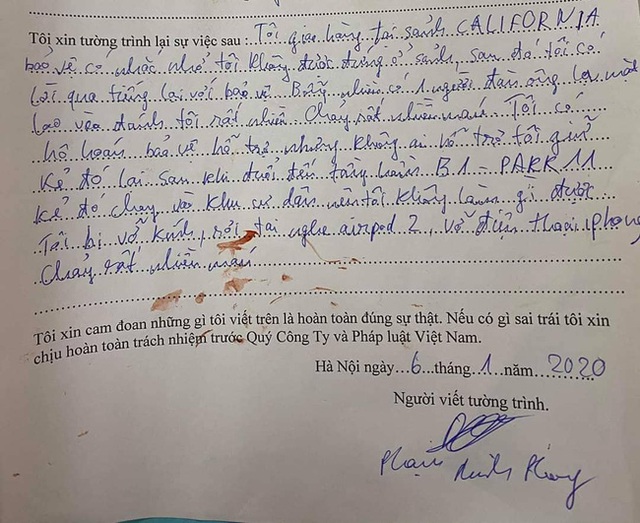 Tôi xin tường trình lại sự việc sau : Tôi giao hàng tại sảnh CALIFORNIA
bảo vệ có nhắc nhở tôi không được đứng ở sảnh, sau đó tôi có
lời qua tiếng lại với bảo vệ. Bỗng nhiên có 1 người đàn ông lạ mặt
lao vào đánh tôi rất nhiều. Chảy rất nhiều máu. Tôi có
hô hoán bảo vệ hỗ trợ nhưng không ai hỗ trợ tôi giữ
kẻ đó lại sau khi đuổi đến tầng hầm B1 - PARK 11
kẻ đó chạy vào khu cư dân nên tôi không làm gì được
Tôi bị vỡ kính, rơi tai nghe airpod 2, vỡ điện thoại iphone
Chảy rất nhiều máu
Tôi xin cam đoan những gì tôi viết trên là hoàn toàn đúng sự thật. Nếu có gì sai trái tôi xin
chịu hoàn toàn trách nhiệm trước Quý Công Ty và Pháp luật Việt Nam.
Hà Nội ngày...6...tháng...1...năm...2020
Người viết tường trình.
Phạm Minh Phong